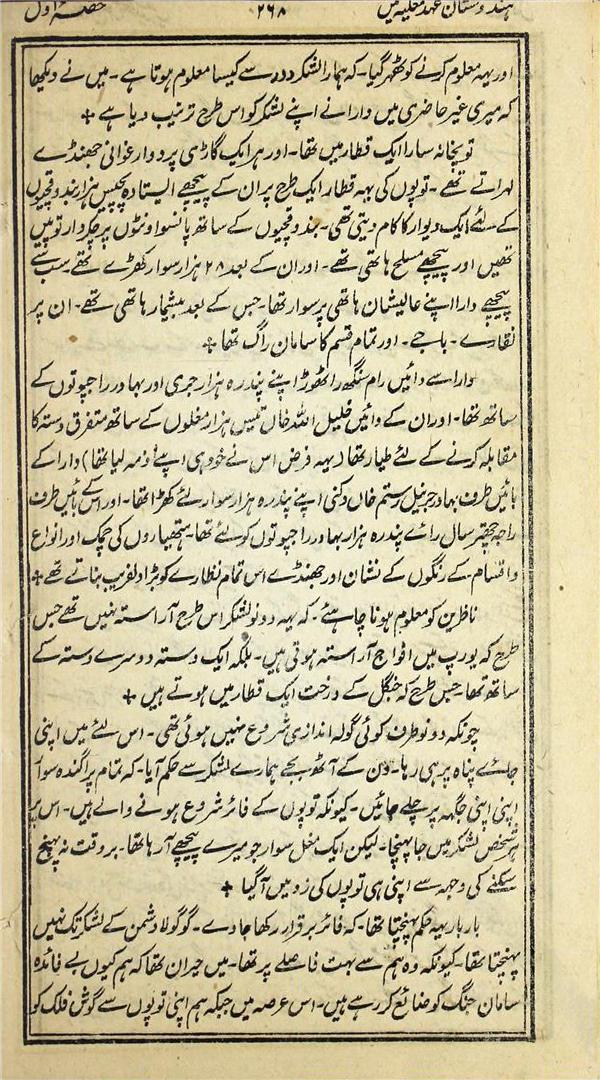 ہندوستان عہد مغلیہ میں ۲۶۸ حصہ اول
اور یہہ معلوم کرنے کو ٹھہر گیا۔ کہ ہمارا لشکر دور سے کیسا معلوم ہوتا ہے۔ میں نے دیکھا
کہ میری غیر حاضری میں دارا نے اپنے لشکر کو اس طرح ترتیب دیا ہے +
توپخانہ سارا ایک قطار میں تھا۔ اور ہر ایک گاڑی پر دو ارغوانی جھنڈے
لہراتے تھے۔ توپوں کی یہہ قطار ایک طرح پر ان کے پیچھے ایستادہ پچیس ہزار بندوقچیوں
کے لئے ایک دیوار کا کام دیتی تھی۔ بندوقچیوں کے ساتھ پانسو اونٹوں پر چکردار توپیں
تھیں اور پیچھے مسلح ہاتھی تھے۔ اور ان کے بعد ۲۸ ہزار سوار کھڑے تھے سب سے
پیچھے دارا اپنے عالیشان ہاتھی پر سوار تھا۔ جس کے بعد بیشمار ہاتھی تھے۔ ان پر
نقارے۔ باجے۔ اور تمام قسم کا سامان راگ تھا +
دارا سے دائیں رام سنگھ راٹھوڑ اپنے پندرہ ہزار جری اور بہادر راجپوتوں کے
ساتھ تھا۔ اور ان کے دائیں خلیل اللہ خاں تیس ہزار مغلوں کے ساتھ متفرق دستہ کا
مقابلہ کرنے کے لئے طیار تھا (یہہ فرض اس نے خود ہی اپنے ذمہ لیا تھا) دارا کے
بائیں طرف بہادر جرنیل رستم خاں دکنی اپنے پندرہ ہزار سوار لئے کھڑا تھا۔ اور اس کے بائیں طرف
راجہ چھتر سال رائے پندرہ ہزار بہادر راجپوتوں کو لئے تھا۔ ہتھیاروں کی چمک اور انواع
و اقسام کے رنگوں کے نشان اور جھنڈے اس تمام نظارے کو بڑا دلفریب بناتے تھے +
ناظرین کو معلوم ہونا چاہئے۔ کہ یہہ دونو لشکر اس طرح آراستہ نہیں تھے جس
طرح کہ یورپ میں افواج آراستہ ہوتی ہیں۔ بلکہ ایک دستہ دوسرے دستہ کے
ساتھ تھا۔ جس طرح کہ جنگل کے درخت ایک قطار میں ہوتے ہیں +
چونکہ دونو طرف کوئی گولہ اندازی شروع نہیں ہوئی تھی۔ اس لئے میں اپنی
جائے پناہ پر ہی رہا۔ دن کے آٹھ بجے ہمارے لشکر سے حکم آیا۔ کہ تمام پراگندہ سوار
اپنی اپنی جگہہ پر چلے جائیں۔ کیونکہ توپوں کے فائر شروع ہونے والے ہیں۔ اس پر
ہر شخص لشکر میں جا پہنچا۔ لیکن ایک مغل سوار جو میرے پیچھے آ رہا تھا۔ بروقت نہ پہنچ
سکنے کی وجہ سے اپنی ہی توپوں کی زد میں آگیا +
بار بار یہہ حکم پہنچتا تھا۔ کہ فائر برقرار رکھا جاوے۔ گو گولا دشمن کے لشکر تک نہیں
پہنچتا تھا۔ کیونکہ وہ ہم سے بہت فاصلے پر تھا۔ میں حیران تھا کہ ہم کیوں بے فائدہ
سامان جنگ کو ضائع کر رہے ہیں۔ اس عرصہ میں جبکہ ہم اپنی توپوں سے گوش فلک کو